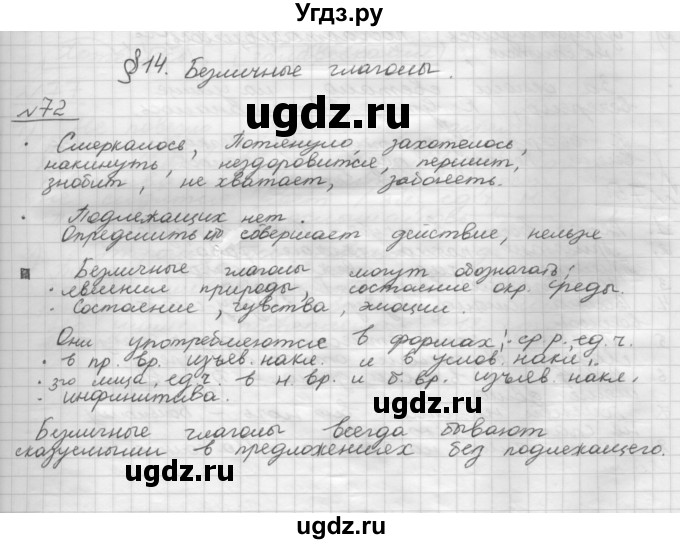 Угдз.ру
§14. Безличные глаголы.
№72
· Смеркалось, Потянуло, захотелось,
накинуть, нездоровится, першит,
знобит, не хватает, заболеть.
· Подлежащих нет.
Определить кто совершает действие, нельзя
Безличные глаголы могут обозначать:
· явления природы, состояние окр. среды.
· Состояние, чувства, эмоции.
Они употребляются в формах: · ср.р., ед.ч.
· в пр. вр. изъяв накл. и в услов. накл.,
· 3го лица, ед.ч. в н. вр. и б. вр. изъяв. накл.
· инфинитива.
Безличные глаголы всегда бывают
сказуемыми в предложениях без подлежащего.
ugdz.ru
ugdz.ru
ugdz.ru
ugdz.ru
ugdz.ru
ugdz.ru
ugdz.ru